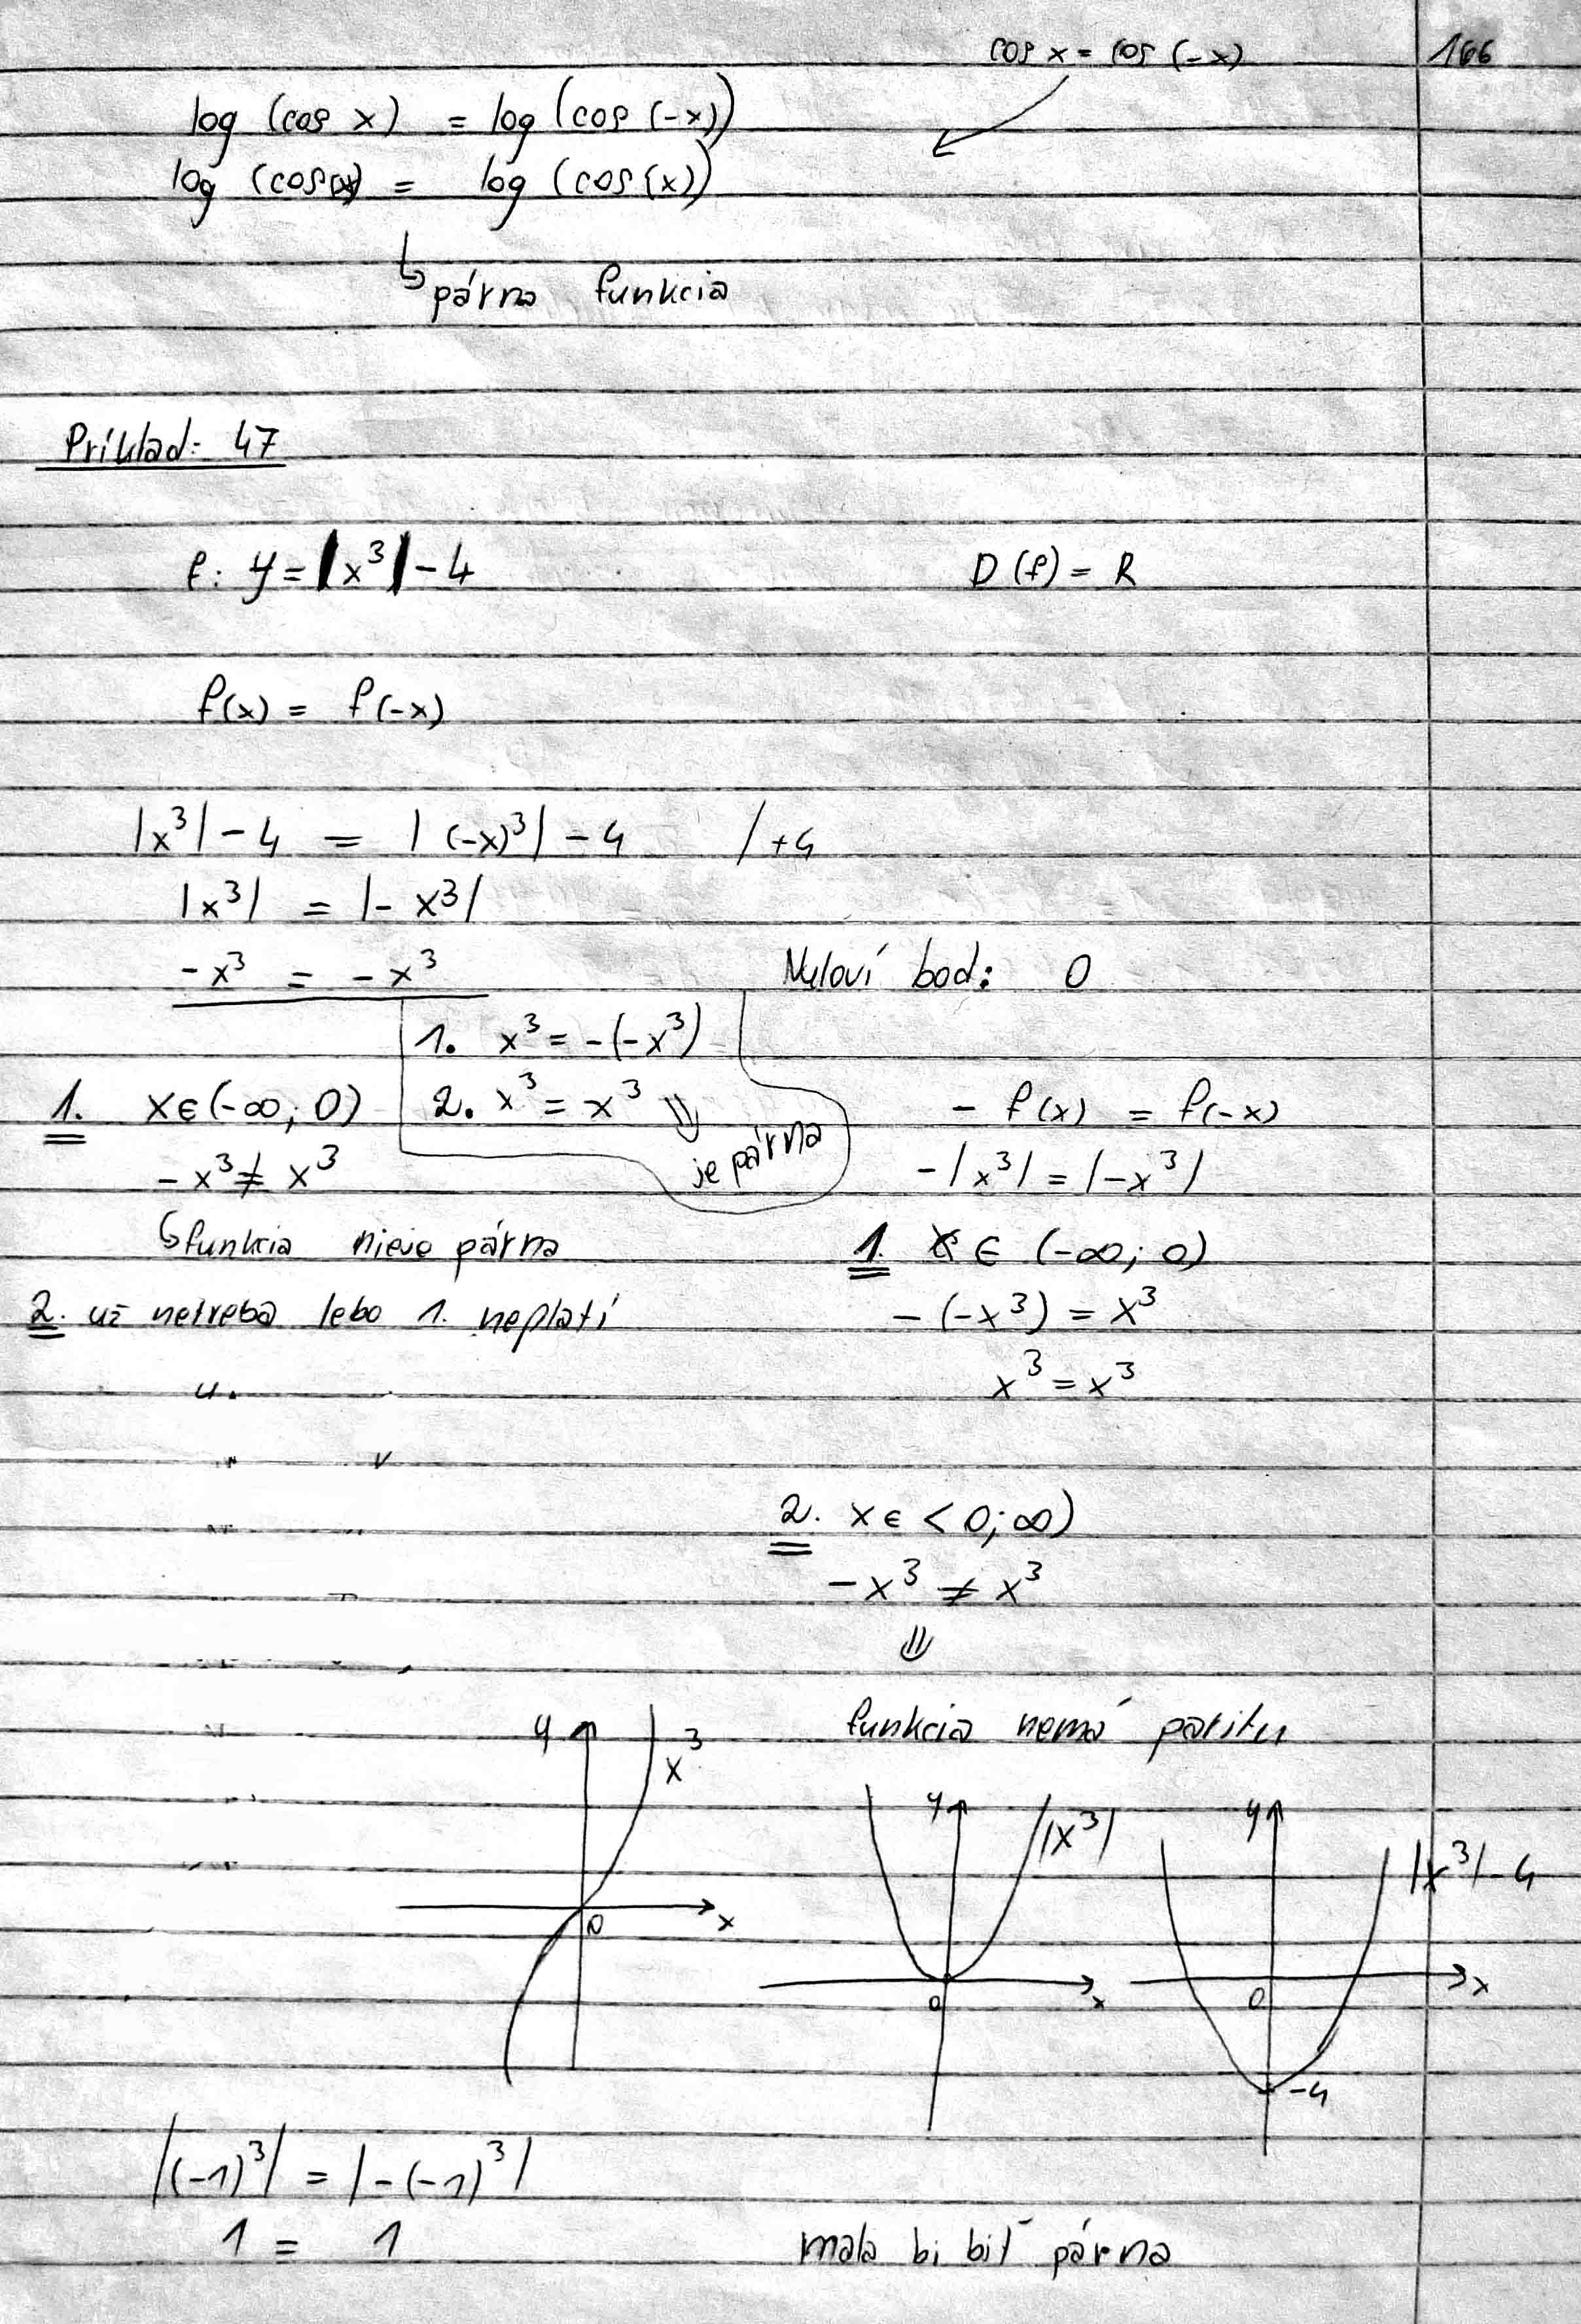 cos x = cos (-x)
166
log (cos x) = log (cos (-x))
log (cos(x) = log (cos (x))
↳ párna funkcia
Príklad: 47
f: y = |x³| - 4
D (f) = R
f(x) = f(-x)
|x³| - 4 = | (-x)³| - 4 / +4
|x³| = |- x³|
-x³ = - x³
Nuloví bod: 0
1. x³ = -(-x³)
2. x³ = x³ ⇓
je párna
1. x∈(-∞; 0)
-x³ ≠ x³
↳ funkcia nieje párna
2. už netreba lebo 1. neplatí
- f(x) = f(-x)
-|x³| = |-x³|
1. x ∈ (-∞; 0)
- (-x³) = x³
x³ = x³
2. x ∈ < 0; ∞)
-x³ ≠ x³
⇓
funkcia nemá paritu
y
x³
0
x
y
|x³|
0
x
y
|x³| - 4
0
x
-4
|(-1)³| = |-(-1)³|
1 = 1
mala bi biť párna